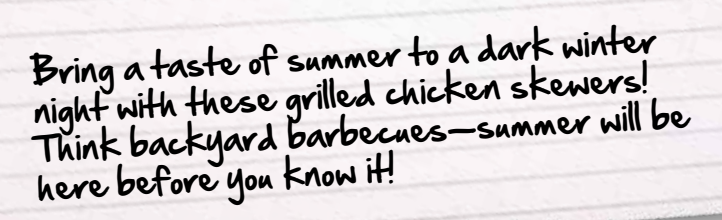 Bring a taste of summer to a dark winter
night with these grilled chicken skewers!
Think backyard barbecues—summer will be
here before you know it!